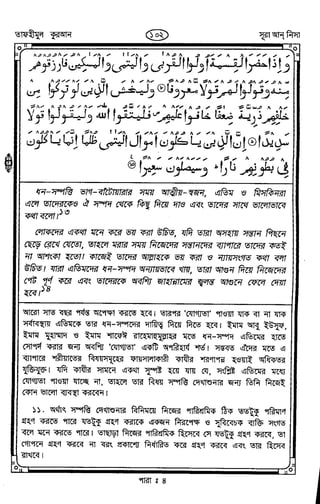 তাফহীমুল কুরআন ১০২ সূরা আন্ নিসা
وَإِذَا حَضَرَ الْقِسْمَةَ أُولُوا الْقُرْبَىٰ وَالْيَتَامَىٰ وَالْمَسَاكِينُ فَارْزُقُوهُمْ
مِنْهُ وَقُولُوا لَهُمْ قَوْلًا مَعْرُوفًا ⑧ وَلْيَخْشَ الَّذِينَ لَوْ تَرَكُوا مِنْ
خَلْفِهِمْ ذُرِّيَّةً ضِعَافًا خَافُوا عَلَيْهِمْ فَلْيَتَّقُوا اللَّهَ وَلْيَقُولُوا قَوْلًا
سَدِيدًا ⑨ إِنَّ الَّذِينَ يَأْكُلُونَ أَمْوَالَ الْيَتَامَىٰ ظُلْمًا إِنَّمَا يَأْكُلُونَ
فِي بُطُونِهِمْ نَارًا وَسَيَصْلَوْنَ سَعِيرًا ⑩
ধন-সম্পত্তি ভাগ-বাঁটোয়ারার সময় আত্মীয়-স্বজন, এতিম ও মিসকিনরা
এলে তাদেরকেও ঐ সম্পদ থেকে কিছু দিয়ে দাও এবং তাদের সাথে ভালোভাবে
কথা বলো।১৩
লোকদের একথা মনে করে ভয় করা উচিত, যদি তারা অসহায় সন্তান পিছনে
ছেড়ে রেখে যেতো, তাহলে মরার সময় নিজেদের সন্তানদের ব্যাপারে তাদের কতই
না আশংকা হতো! কাজেই তাদের আল্লাহকে ভয় করা ও ন্যায়সংগত কথা বলা
উচিত। যারা এতিমদের ধন-সম্পদ অন্যায়ভাবে খায়, তারা আগুন দিয়ে নিজেদের
পেট পূর্ণ করে এবং তাদেরকে অবশ্যি জাহান্নামের জ্বলন্ত আগুনে ফেলে দেয়া
হবে।১৪
আরো সাত বছর পর্যন্ত অপেক্ষা করতে হবে। তারপর 'যোগ্যতা' পাওয়া যাক বা না যাক
সর্বাবস্থায় এতিমকে তার ধন-সম্পদের দায়িত্ব দিয়ে দিতে হবে। ইমাম আবু ইউসুফ,
ইমাম মুহাম্মদ ও ইমাম শাফেঈ রাহেমাহুমুল্লাহর মতে ধন-সম্পদ এতিমের হাতে
সোপর্দ করার জন্য অবশ্যি 'যোগ্যতা' একটি অপরিহার্য শর্ত। সম্ভবত এঁদের মতে এ
ব্যাপারে শরীয়াতের বিষয়সমূহের ফায়সালাকারী কাযীর শরণাপন্ন হওয়াই অধিকতর
যুক্তিযুক্ত। যদি কাযীর সামনে একথা সুস্পষ্ট হয়ে যায় যে, সংশ্লিষ্ট এতিমের মধ্যে
যোগ্যতা পাওয়া যাচ্ছে না, তাহলে তার বিষয় সম্পত্তি দেখাশুনার জন্য তিনি নিজেই
কোন ভালো ব্যবস্থা করবেন।
১১. অর্থাৎ সম্পত্তি দেখাশুনার বিনিময়ে নিজের পারিশ্রমিক ঠিক ততটুকু পরিমাণ
গ্রহণ করতে পারে যতটুকু গ্রহণ করাকে একজন নিরপেক্ষ ও সুবিবেচক ব্যক্তি সংগত
বলে মনে করতে পারে। তাছাড়া নিজের পারিশ্রমিক হিসেবে সে যতটুকু গ্রহণ করবে, তা
গোপনে গ্রহণ করবে না বরং প্রকাশ্যে নির্ধারিত করে গ্রহণ করবে এবং তার হিসেব
রাখবে।
পারা ঃ ৪